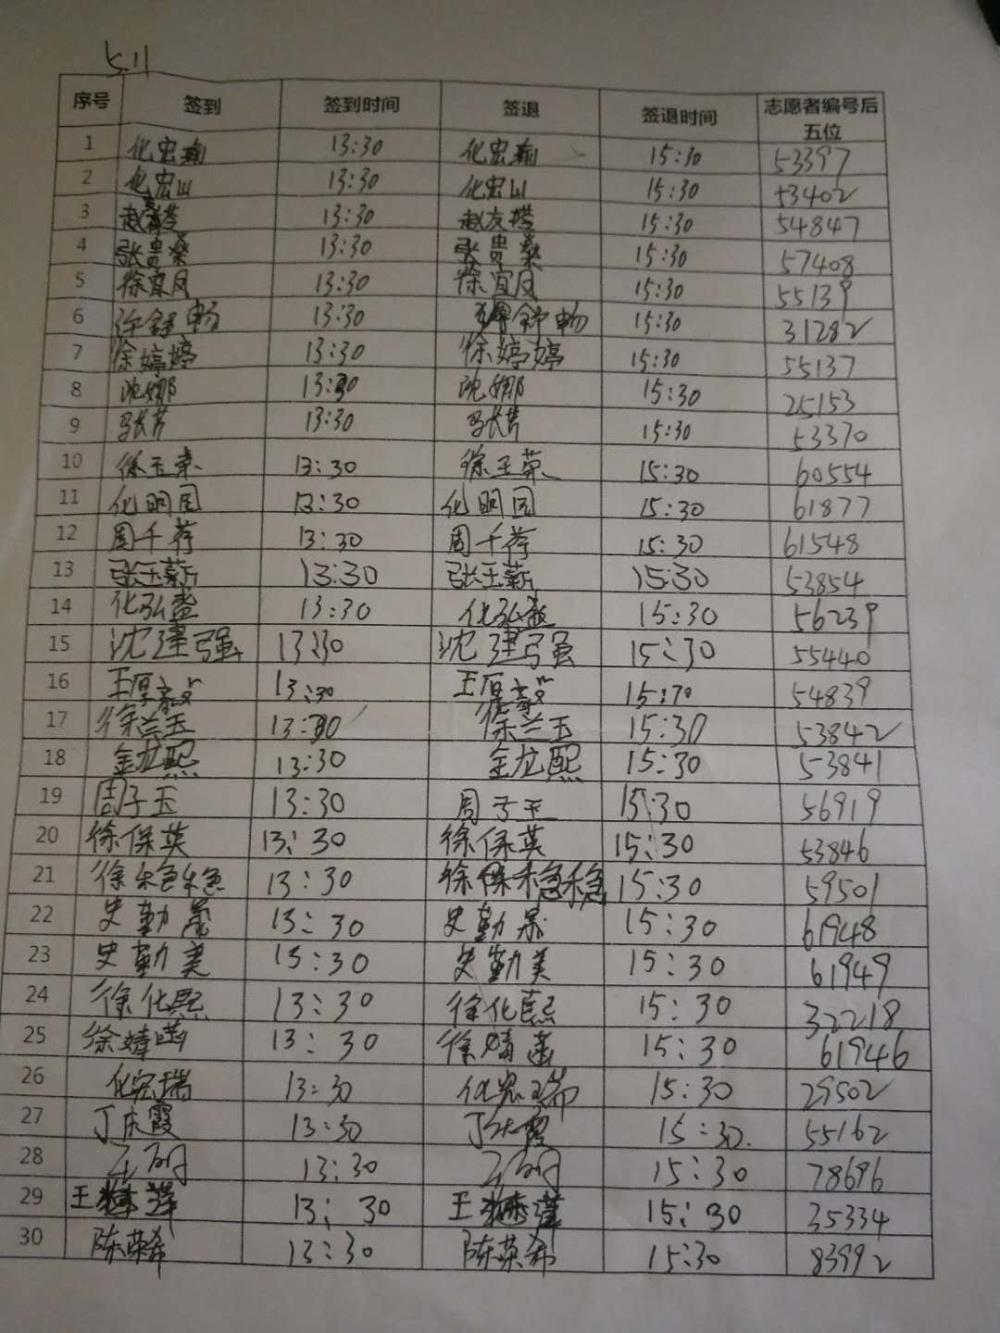 5.11
序号 签到 签到时间 签退 签退时间 志愿者编号后五位
1 化宏瀚 13:30 化宏瀚 15:30 53397
2 化宏山 13:30 化宏山 15:30 53402
3 13:30 赵友塔 15:30 54847
4 张贵桑 13:30 张贵桑 15:30 57408
5 徐宜凤 13:30 徐宜凤 15:30 55139
6 徐舒畅 13:30 舒畅 15:30 31282
7 徐婷婷 13:30 徐婷婷 15:30 55137
8 沈娜 13:30 沈娜 15:30 25153
9 13:30 15:30 53370
10 徐玉荣 13:30 徐玉荣 15:30 60554
11 化明园 13:30 化明园 15:30 61877
12 周千荷 13:30 周千荷 15:30 61548
13 张玉薪 13:30 张玉薪 15:30 53854
14 化弘盎 13:30 化弘盎 15:30 56239
15 沈建强 13:30 沈建强 15:30 55440
16 王厚毅 13:30 王厚毅 15:30 54839
17 徐兰玉 13:30 徐兰玉 15:30 53842
18 金龙熙 13:30 金龙熙 15:30 53841
19 周子玉 13:30 周子玉 15:30 56919
20 徐保英 13:30 徐保英 15:30 53846
21 徐 13:30 徐 15:30 59501
22 史勤 13:30 史勤 15:30 61948
23 史勤美 13:30 史勤美 15:30 61949
24 徐化熙 13:30 徐化熙 15:30 32218
25 徐婧菡 13:30 徐婧菡 15:30 61946
26 化宏瑞 13:30 化宏瑞 15:30 29502
27 丁庆霞 13:30 丁庆霞 15:30. 55162
28 13:30 15:30 78696
29 王 13:30 王 15:30 35334
30 陈英希 13:30 陈英希 15:30 83992